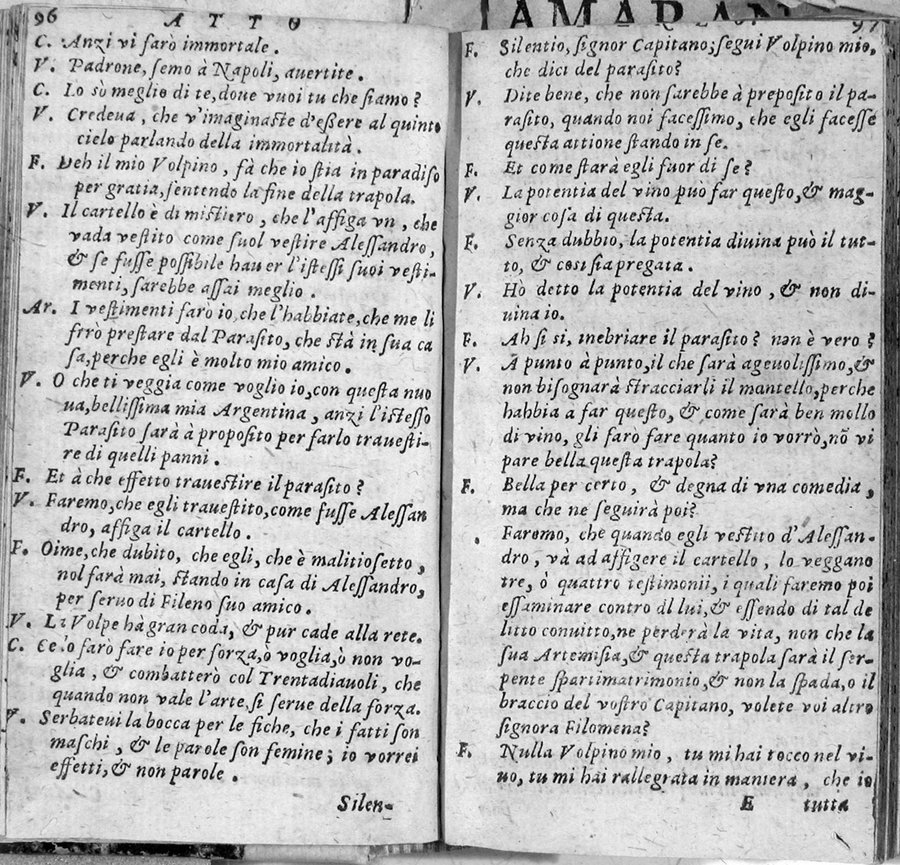 96 ATTO
C. Anzi vi farò immortale.
V. Padrone, semo à Napoli, auertite.
C. Lo sò meglio di te, doue vuoi tu che siamo?
V. Credeua, che v'imaginaste d'eßere al quinto
cielo parlando della immortalità.
F. Deh il mio Volpino, fà che io stia in paradiso
per gratia, sentendo la fine della trapola.
V. Il cartello è di mistiero, che l'affiga vn, che
vada vestito come suol vestire Alessandro,
& se fusse possibile hauer l'istessi suoi vesti-
menti, sarebbe assai meglio.
Ar. I vestimenti farò io, che l'habbiate, che me li
ferò prestare dal Parasito, che stà in sua ca
sa, perche egli è molto mio amico.
V. O che ti veggia come voglio io, con questa nuo
ua, bellissima mia Argentina, anzi l'istesso
Parasito sarà à proposito per farlo trauesti-
re di quelli panni.
F. Et à che effetto trauestire il parasito?
V. Faremo, che egli trauestito, come fusse Alessan
dro, affiga il cartello.
F. Oime, che dubito, che egli, che è malitiosetto,
nol farà mai, stando in casa di Alessandro,
per seruo di Fileno suo amico.
V. La Volpe hà gran coda, & pur cade alla rete.
C. Ce lo farò fare io per forza, ò voglia, ò non vo-
glia, & combatterò col Trentadiauoli, che
quando non vale l'arte, si serue della forza.
V. Serbateui la bocca per le fiche, che i fatti son
maschi, & le parole son femine; io vorrei
effetti, & non parole.
Silen-
AMARAN
97
F. Silentio, signor Capitano; segui Volpino mio,
che dici del parasito?
V. Dite bene, che non sarebbe à preposito il pa-
rasito, quando noi facessimo, che egli facesse
questa attione stando in se.
F. Et come starà egli fuor di se?
V. La potentia del vino può far questo, & mag-
gior cosa di questa.
F. Senza dubbio, la potentia diuina può il tut-
to, & cosi sia pregata.
V. Hò detto la potentia del vino, & non di-
uina io.
F. Ah si si, inebriare il parasito? non è vero?
V. A punto à punto, il che sarà ageuolissimo, &
non bisognarà stracciarli il mantello, perche
habbia a far questo, & come sarà ben mollo
di vino, gli farò fare quanto io vorrò, nõ vi
pare bella questa trapola?
F. Bella per certo, & degna di vna comedia,
ma che ne seguirà poi?
Faremo, che quando egli vestito d'Alessan-
dro, và ad affigere il cartello, lo veggano
tre, ò quattro testimonii, i quali faremo poi
essaminare contro di lui, & essendo di tal de
litto conuitto, ne perderà la vita, non che la
sua Artemisia, & questa trapola sarà il ser-
pente spartimatrimonio, & non la spada, o il
braccio del vostro Capitano, volete voi altro
signora Filomena?
F. Nulla Volpino mio, tu mi hai tocco nel vi-
uo, tu mi hai rallegrata in maniera, che io
E tutta